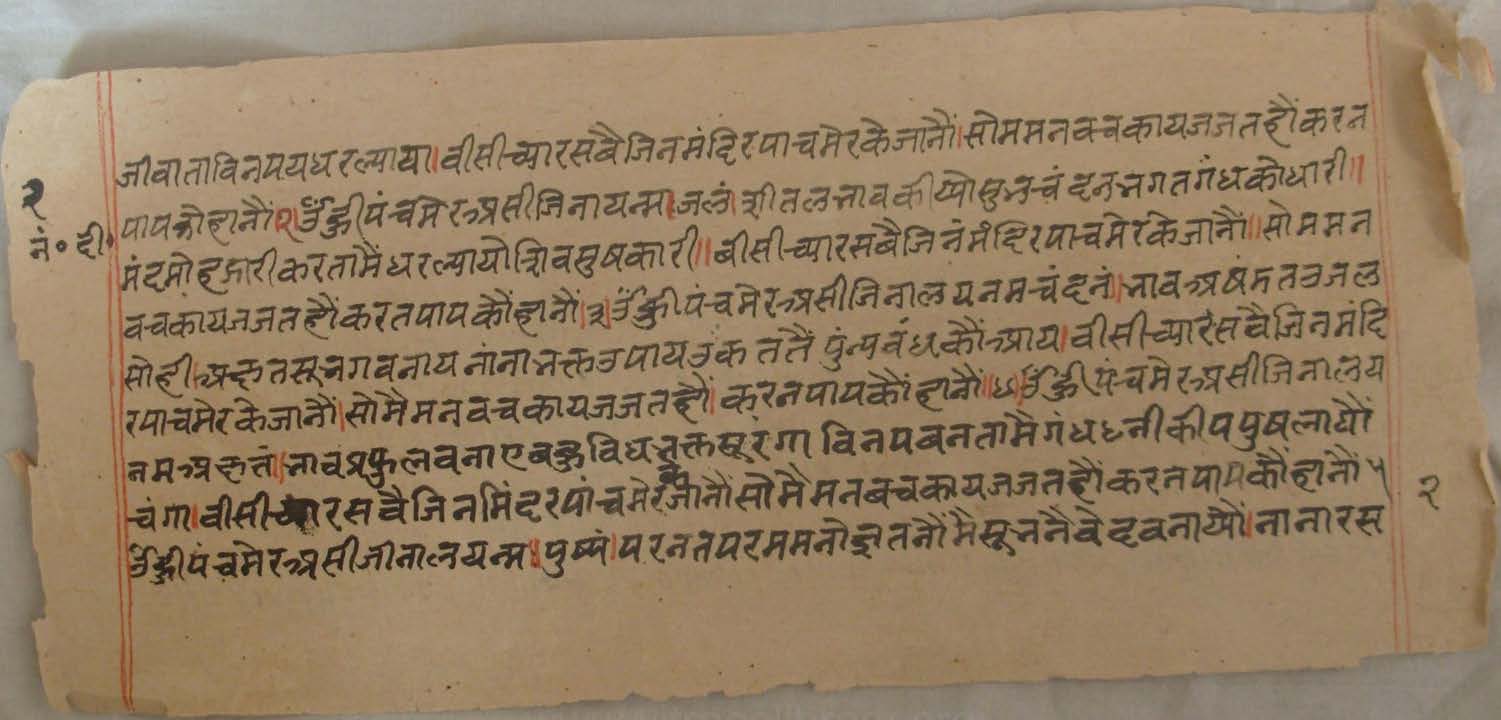 जीवाताविनपयधरल्याया।वीसीच्यारसवैजिनमंदिरपाचमेरकेजानौं।सोममनवचकायजजतहौंकरन
२
पापकौहानौं।२।ॐह्रीपंचमेरुअसीजिनायन्म।जलं।शीतलभावकीय्योसुभचंदनभगतगंधकोधारी॥
नं॰दी॰
मंदमोहजारीकरतामैंधरल्यायोशिवसुषकारी॥बीसीच्यारसबैजिनमंदिरपाचमेरकेजानौं॥सोममन
वचकायजजतहौंकरतपापकौंहानौं।३।ॐह्रीपंचमेरुअसीजिनालयनमचंदनं।भावअषंमतउजल
सोही।अक्षतसूभगवनायनांनाभक्तउपायउकततैंपुंन्यबंधकौंआय।वीसीच्यारसवैजिनमंदि
रपाचमेरकेजानौं।सोमैमनवचकायजजतहौं।करनपापकौंहानौं॥४।ॐह्रीपंचमेरुअसीजिनालय
नमअक्षतं।भावप्रफुलवनाएबहुविधभक्तसूरंगाविनपबनतामैगंधधनीकीपपुषलायौं
चंगा।वीसीच्यारसवैजिनमिंदरपांचमेरजानौंसोमैमनबचकायजजतहौंकरनपापकौंहानौं५
२
ॐह्रीपंचमेरुअसीजीनालयन्म॥पुष्पं।परनतपरममनोज्ञतनौंमैसूभनैवेदवनाय्यौं।नानारस